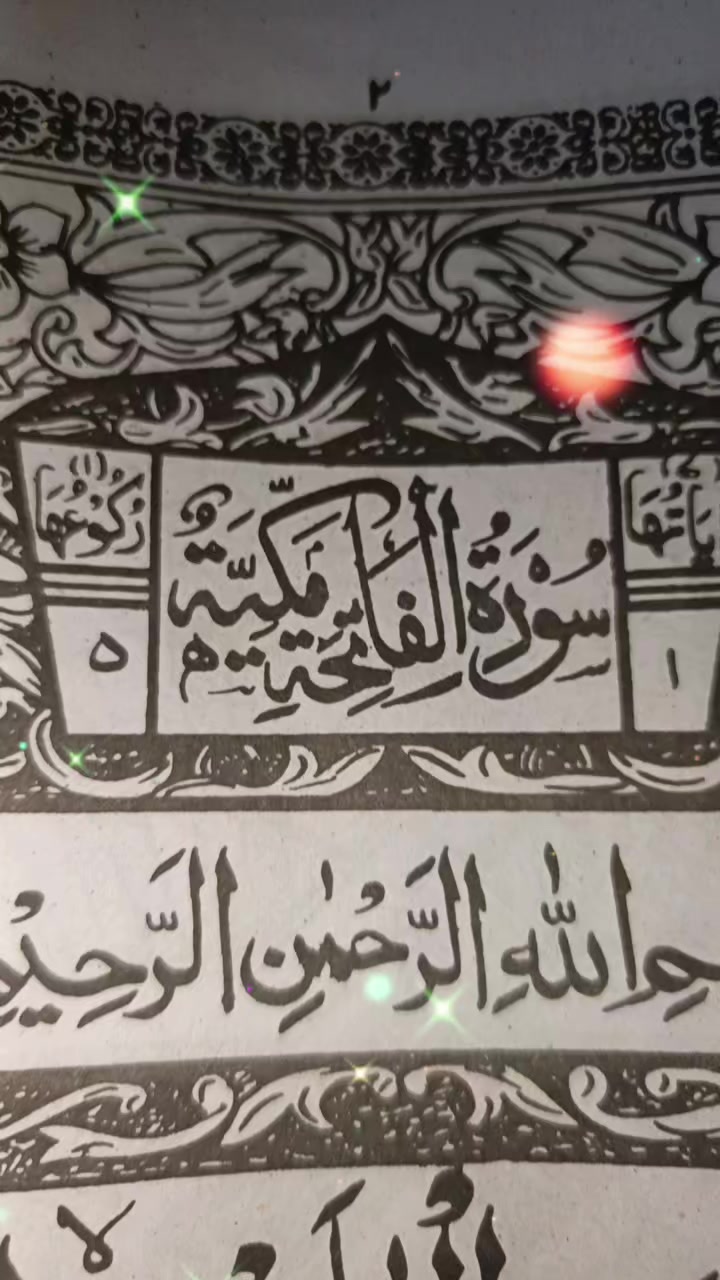 ٢
اٰيَاتُهَا سُوْرَةُ الْفَاتِحَةِ مَكِّيَّةٌ رُكُوْعُهَا (١)
١ ٥
بِسْمِ اللّٰهِ الرَّحْمٰنِ الرَّحِيْمِ